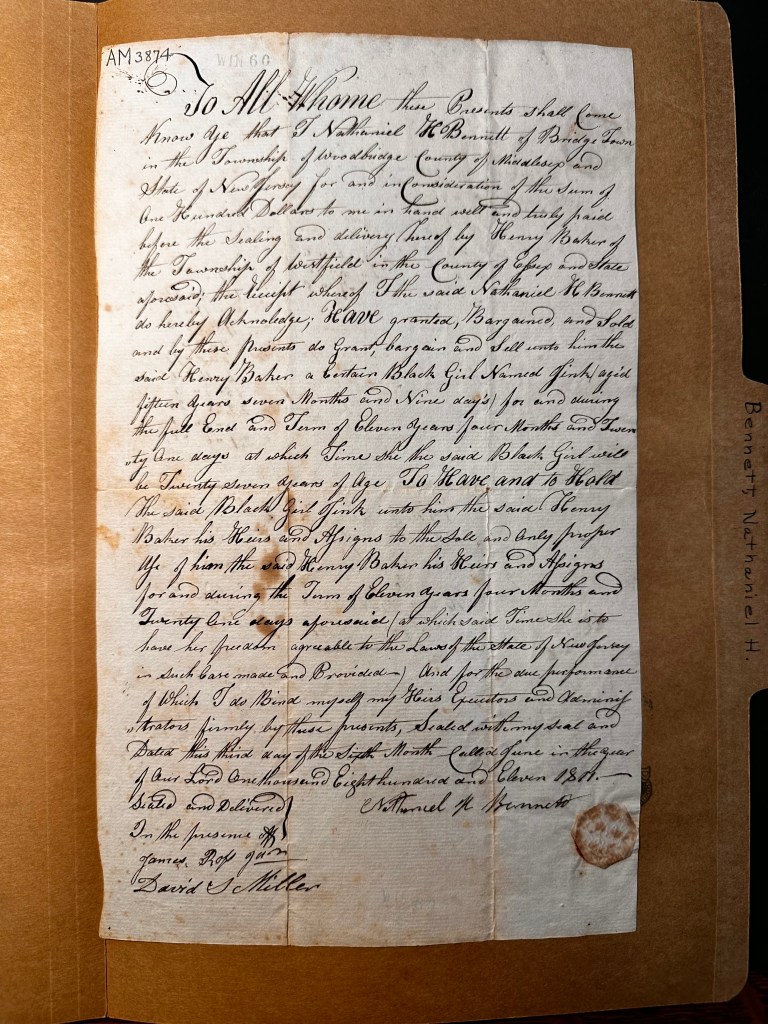 AM 3874
WIN 60
To All Whome these Presents shall Come
Know Ye that I Nathaniel H Bennett of Bridge Town
in the Township of Woodbridge County of Middlesex and
State of New Jersey for and in Consideration of the Sum of
One Hundred Dollars to me in hand well and truly paid
before the Sealing and delivery hereof by Henry Baker of
the Township of Westfield in the County of Essex and State
aforesaid; the Receipt whereof I the said Nathaniel H Bennett
do hereby Acknoledge; Have granted, Bargained, and Sold
and by these presents do Grant, bargain and Sell unto him the
said Henry Baker a Certain Black Girl Named Jink (aged
fifteen Years seven Months and Nine day's) for and during
the full End and Term of Eleven Years four Months and Twen
"ty One days at which Time she the said Black Girl will
be Twenty seven Years of Age To Have and to Hold
The said Black Girl Jink unto him the said Henry
Baker his Heirs and Assigns to the Sole and Only proper
Use of him the said Henry Baker his Heirs and Assigns
for and during the Term of Eleven Years four Months and
Twenty One days aforesaid (at which said Time She is to
have her freedom agreeable to the Laws of the State of New Jersey
in such Case made and Provided—) And for the due performance
of Which I do Bind myself my Heirs Executors and Adminis
"trators firmly by these presents, Sealed with my seal and
Dated this third day of the Sixth Month Called June in the Year
of Our Lord One thousand Eight hundred and Eleven 1811.—
Sealed and Delivered
Nathaniel H Bennett
In the presence off
James Ross
David S Miller
Bennett, Nathaniel H.